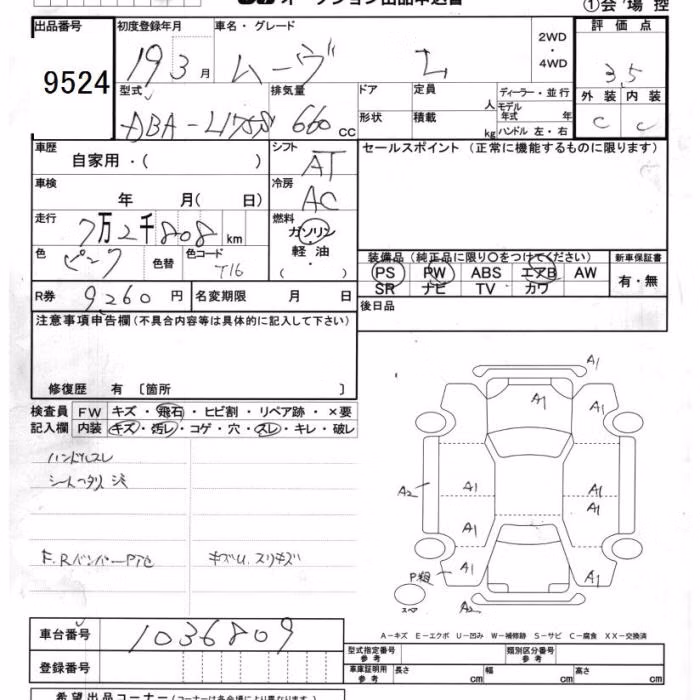 ①会場控
出品番号 初度登録年月 車名・グレード 評価点
9524 19 3月 ムーヴ L 2WD・4WD 3.5
型式 排気量 ドア 定員 人 ディーラー・並行 外装 内装
DBA-L175S 660cc 形状 積載 kg モデル年式 年 ハンドル 左・右 C C
車歴 シフト セールスポイント(正常に機能するものに限ります)
自家用・( ) AT
車検 冷房
年 月( 日) AC
走行 燃料
7万2千808km ガソリン・軽油・( )
色 色替 色コード 装備品(純正品に限り○をつけてください) 新車保証書
ピンク T16 PS PW ABS エアB AW 有・無
SR ナビ TV カワ
R券 9,260円 名変期限 月 日 後日品
注意事項申告欄(不具合内容等は具体的に記入して下さい)
修復歴 有 〔箇所 〕
検査員 FW キズ・飛石・ヒビ割・リペア跡・×要
記入欄 内装 キズ・汚レ・コゲ・穴・スレ・キレ・破レ
ハンドルスレ
シートヘタリ シミ
F.Rバンパー キズU.スリキズ
A1
A1 A1
A2 A1 A1
A1 A1
A1 A1
A2
車台番号 1036809
A-キズ E-エクボ U-凹み W-補修跡 S-サビ C-腐食 XX-交換済
型式指定番号 参考 類別区分番号 参考
登録番号 車庫証明用 参考 長さ cm 幅 cm 高さ cm
希望出品コーナー